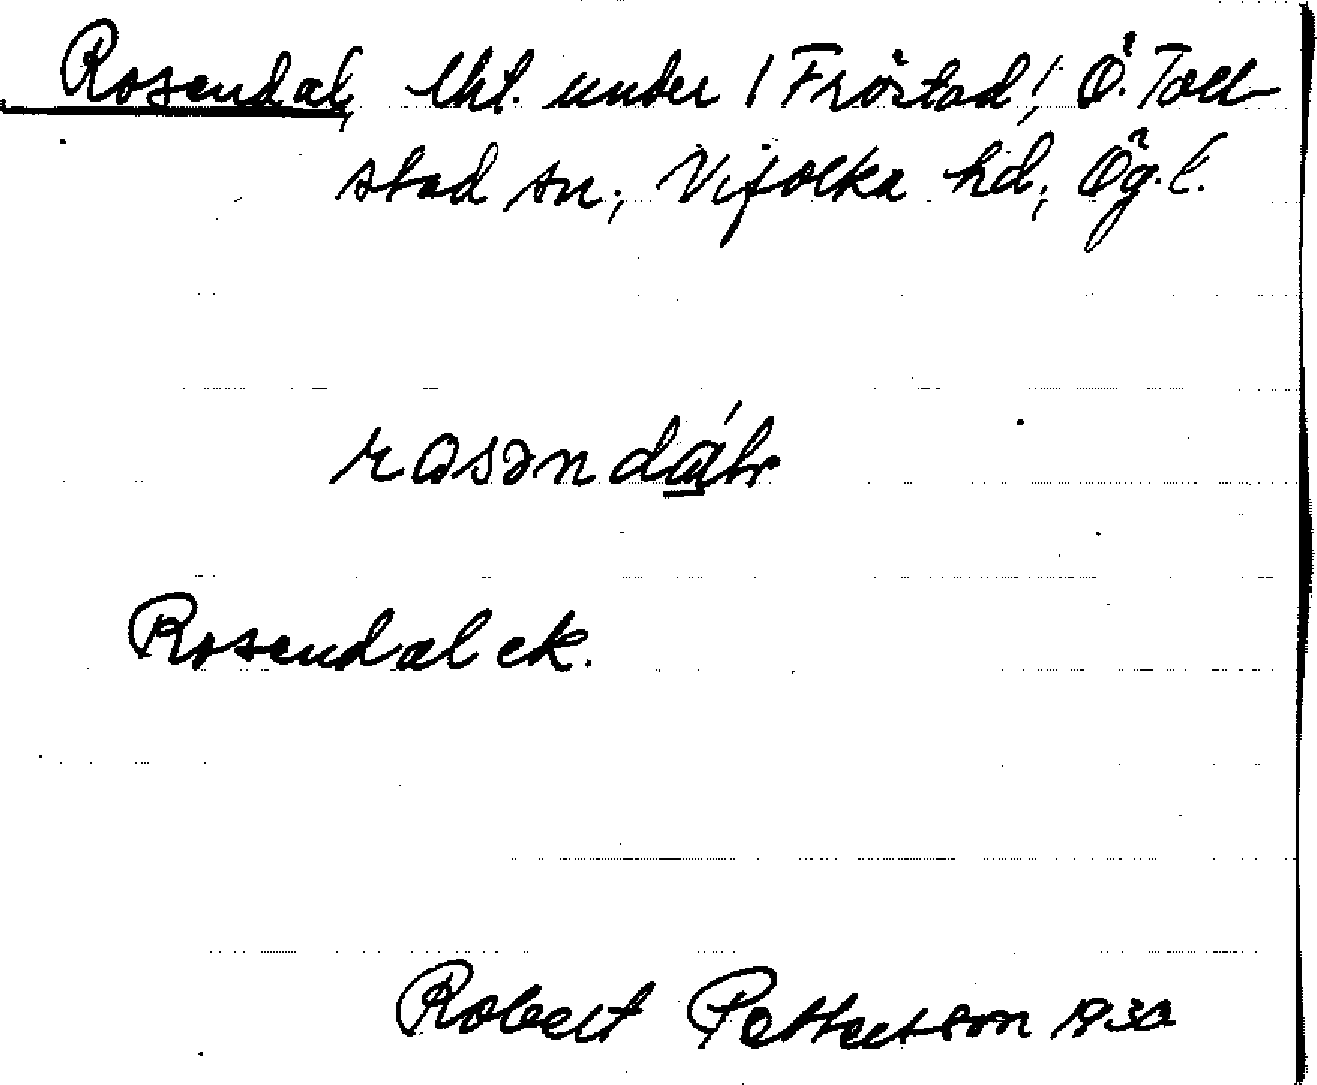 Rosendal, lht. under /Fröstad/, Ö. Toll-
stad sn, Vifolka hd, Ög. l.
rosəndáhr
Rosendal ek.
Robert Pettersson 1930